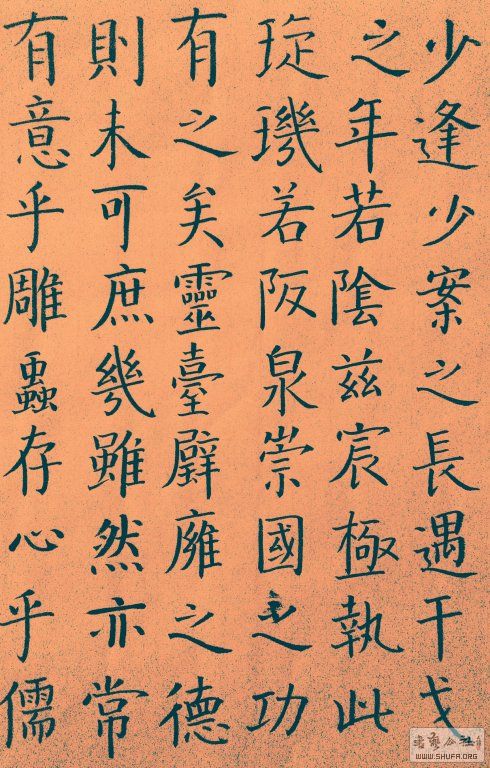 少逢少案之長遇干戈
之年若陰茲宸極執此
琁璣若阪泉崇國之功
有之矣靈臺辟廱之德
則未可庶幾雖然亦常
有意乎雕蟲存心乎儒
WWW.SHUFA.ORG